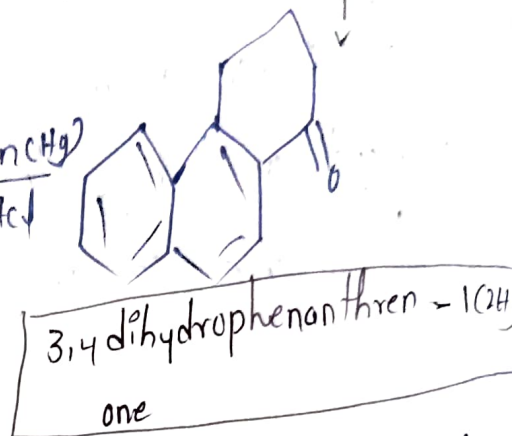 n(Hg)
O
3,4 dihydrophenanthren - 1(2H
one